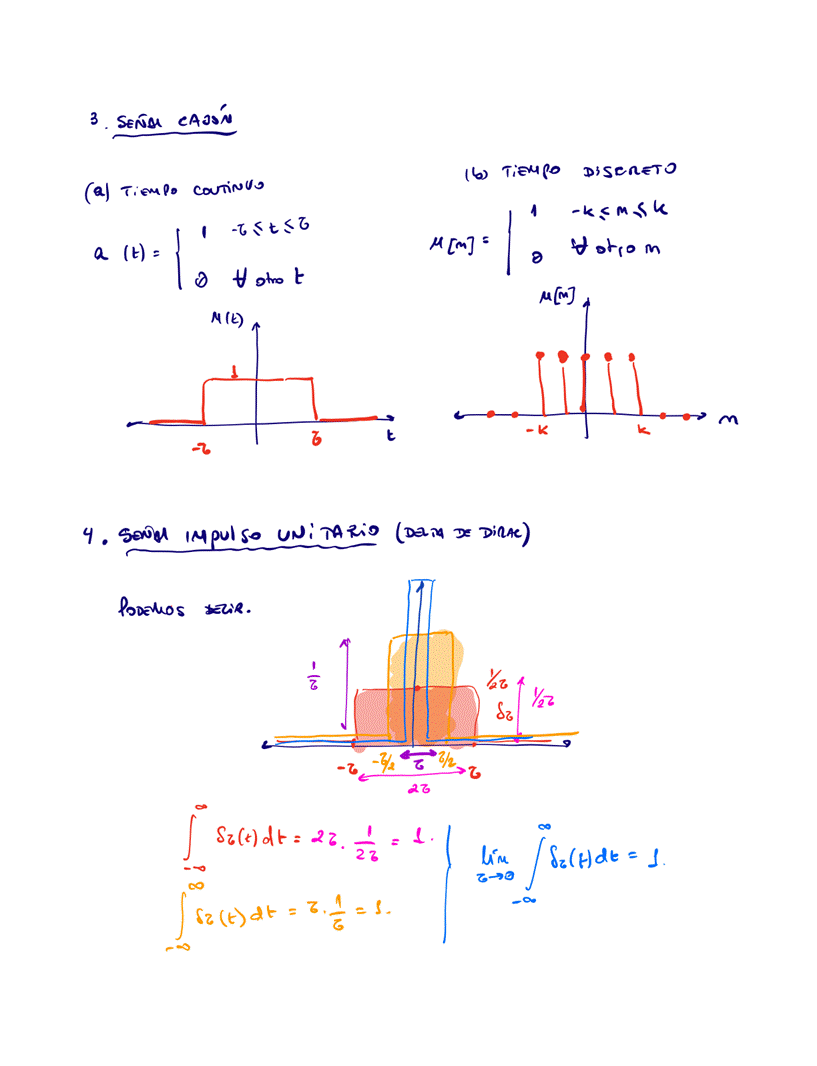 3. SEÑAL CAJÓN
(a) TIEMPO CONTINUO
a (t) = { 1 -τ ≤ t ≤ τ
0 ∀ otro t
(b) TIEMPO DISCRETO
μ[m] = | 1 -k ≤ m ≤ k
0 ∀ otro m
μ(t)
1
-τ τ t
μ[m]
-k k m
4. SEÑAL IMPULSO UNITARIO (DELTA DE DIRAC)
PODEMOS DECIR.
1/τ
1/2τ
δτ
1/2τ
-τ -τ/2 τ τ/2 τ
2τ
∫_{-∞}^{∞} δτ(t) dt = 2τ . 1/2τ = 1.
∫_{-∞}^{∞} δτ(t) dt = τ . 1/τ = 1.
lím_{τ→0} ∫_{-∞}^{∞} δτ(t) dt = 1.